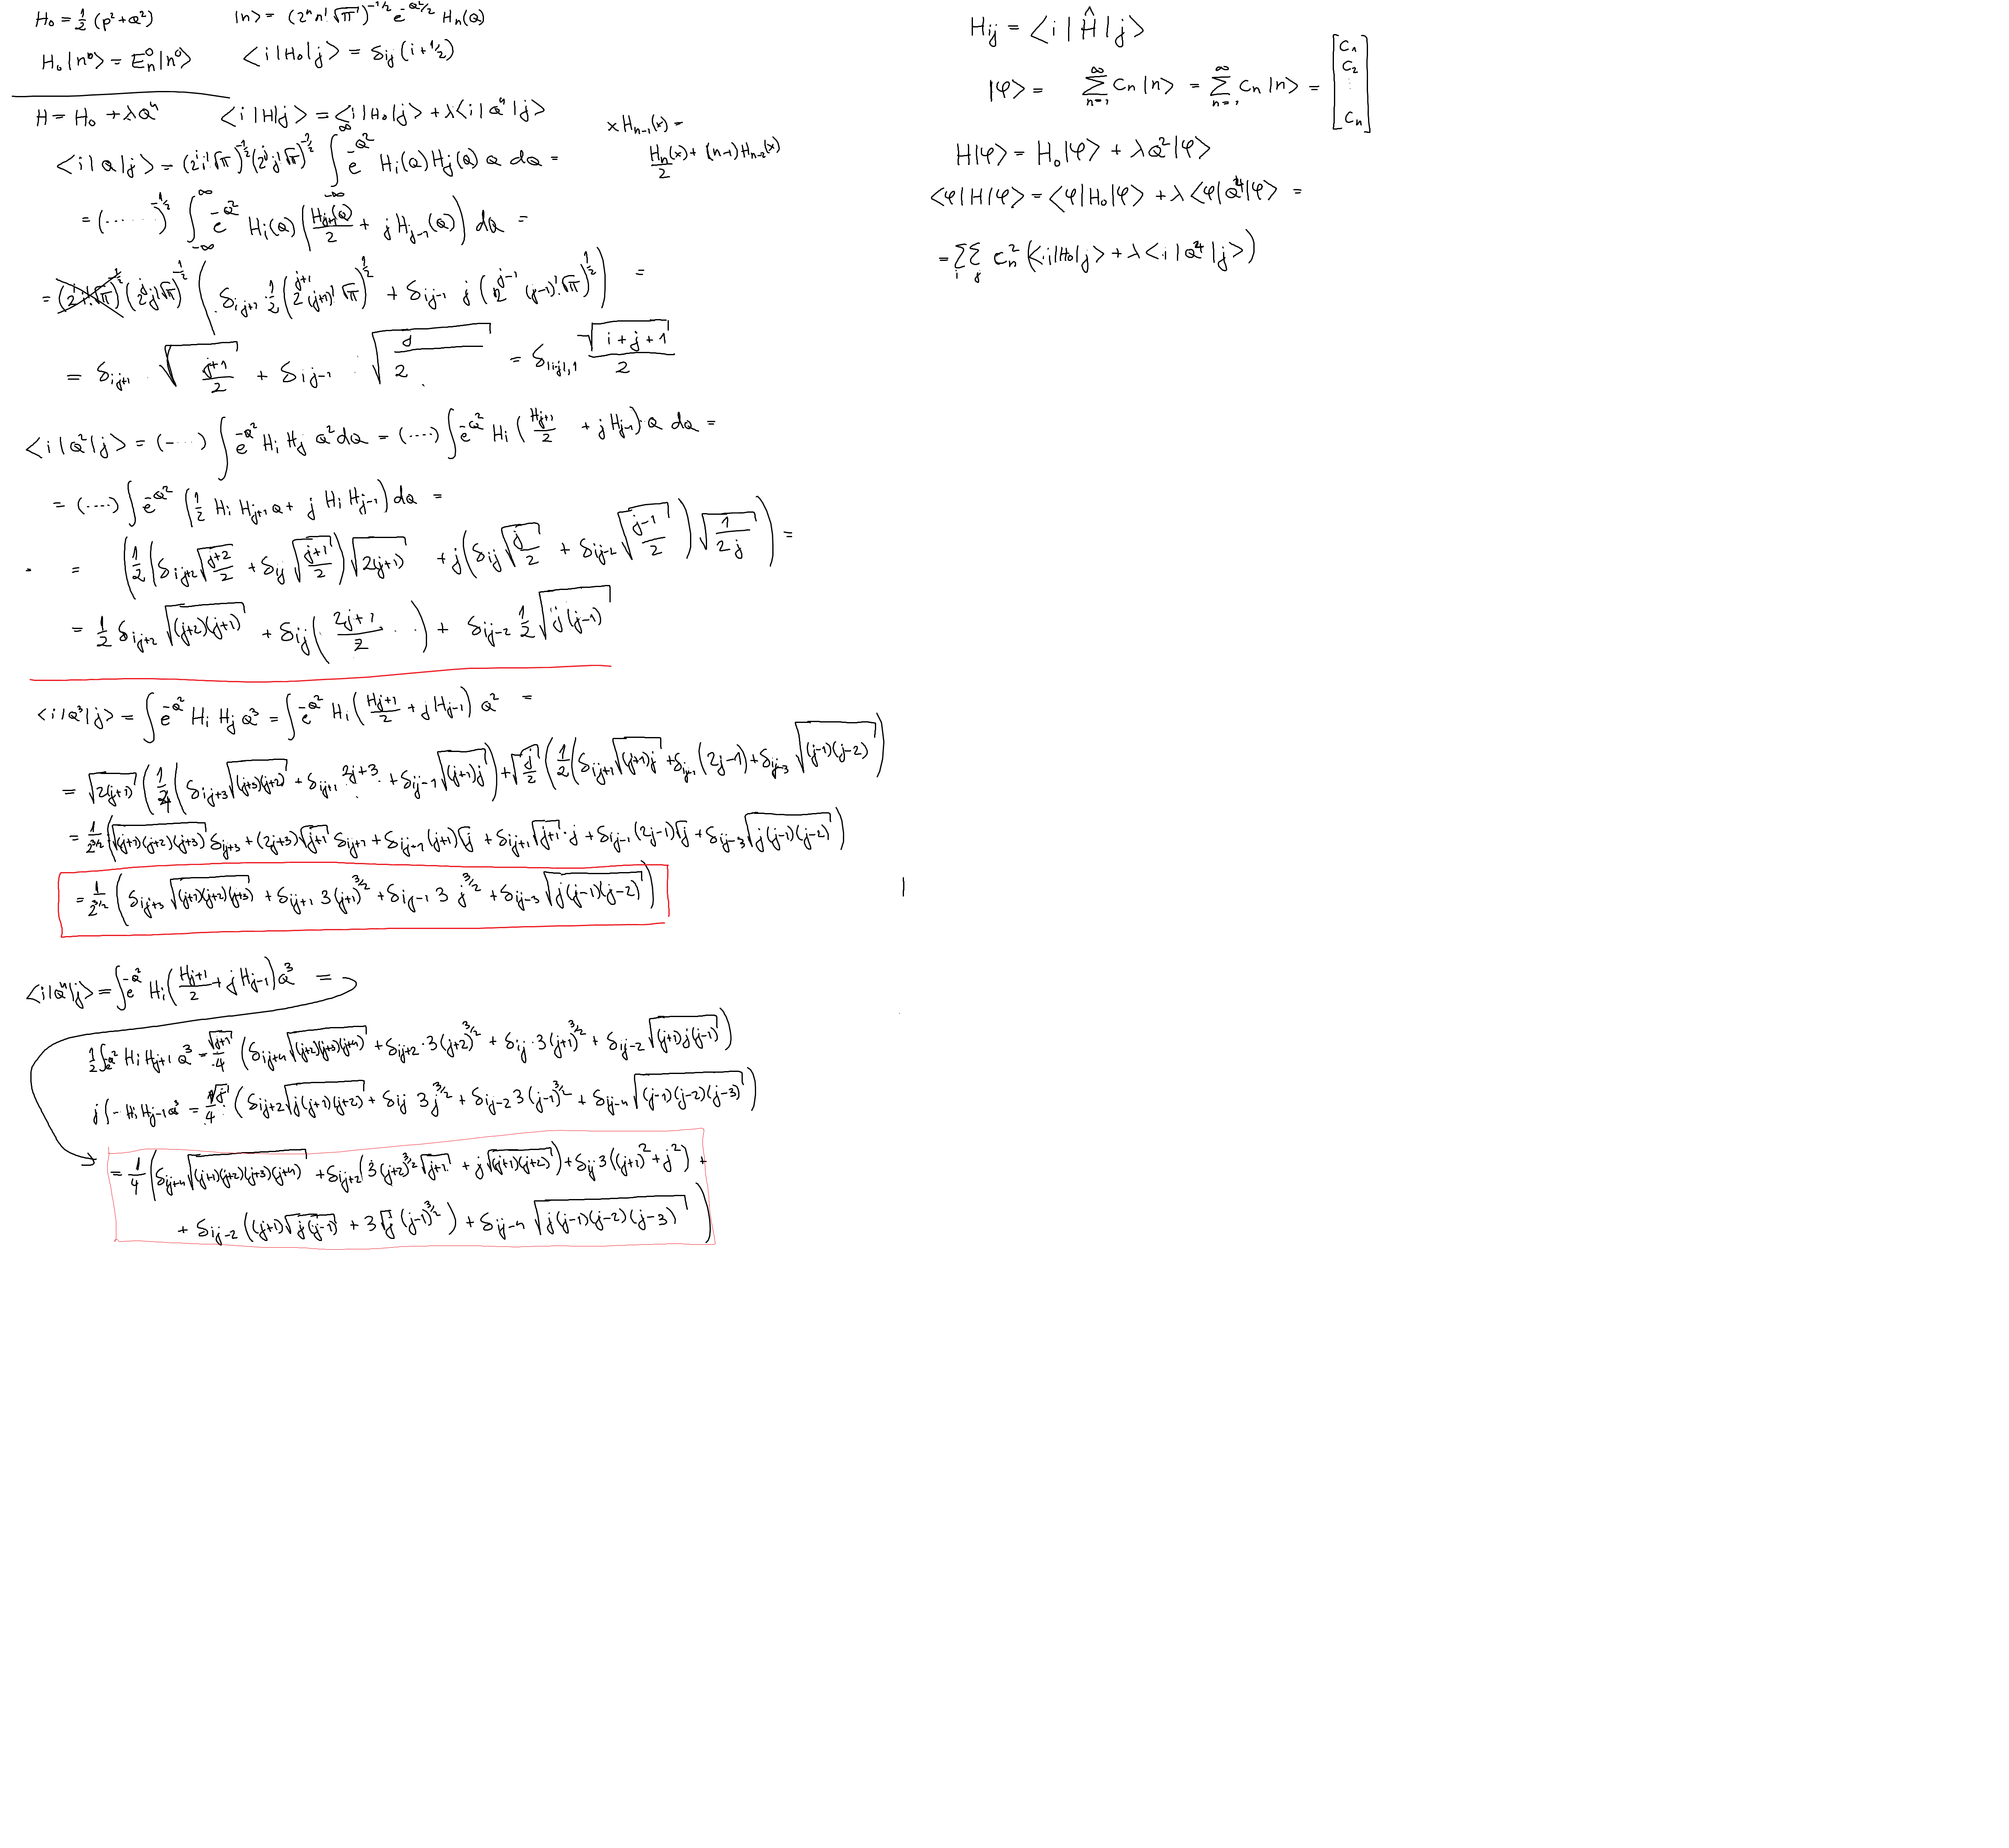 H₀ = ½ (p² + Q²)   |n> = (2ⁿ n! √π)^(-1/2) e^(-Q²/2) Hₙ(Q)
H₀ |n⁰> = Eₙ⁰ |n⁰>   <i|H₀|j> = δij (i + 1/2)
H = H₀ + λQ⁴   <i|H|j> = <i|H₀|j> + λ<i|Q⁴|j>
<i|Q|j> = (2^i i! √π)^(-1/2) (2^j j! √π)^(-1/2) ∫_{-∞}^{∞} e^(-Q²) Hi(Q) Hj(Q) Q dQ =
x Hn-1(x) =
Hn(x)/2 + (n-1) Hn-2(x)
= (......)^(-1/2) ∫_{-∞}^{∞} e^(-Q²) Hi(Q) (Hj+1(Q)/2 + j Hj-1(Q)) dQ =
= (2^i i! √π)^(-1/2) (2^j j! √π)^(-1/2) (δij+1 · ½ (2^(j+1) (j+1)! √π)^(1/2) + δij-1 j (2^(j-1) (j-1)! √π)^(1/2)) =
= δij+1 · √((j+1)/2) + δij-1 · √(j/2) = δ|i-j|,1 √(i+j+1)/2
<i|Q²|j> = (....) ∫ e^(-Q²) Hi Hj Q² dQ = (....) ∫ e^(-Q²) Hi (Hj+1/2 + j Hj-1) · Q dQ =
= (....) ∫ e^(-Q²) (½ Hi Hj+1 Q + j Hi Hj-1) dQ =
= (½ (δij+2 √((j+2)/2) + δij √((j+1)/2)) √(2(j+1)) + j (δij √(j/2) + δij-2 √((j-1)/2)) √(1/(2j))) =
= ½ δij+2 √((j+2)(j+1)) + δij ((2j+1)/2) + δij-2 ½ √(j(j-1))
<i|Q³|j> = ∫ e^(-Q²) Hi Hj Q³ = ∫ e^(-Q²) Hi (Hj+1/2 + j Hj-1) Q² =
= √(2(j+1)) (¼ (δij+3 √((j+3)(j+2)) + δij+1 2j+3 + δij-1 √((j+1)j)) + √(j/2) (½ (δij+1 √((j+1)j) + δij-1 (2j-1) + δij-3 √((j-1)(j-2)))
= 1/2^(3/2) (√((j+1)(j+2)(j+3)) δij+3 + (2j+3) √(j+1) δij+1 + δij-1 (j+1)√j + δij+1 √(j+1) · j + δij-1 (2j-1)√j + δij-3 √(j(j-1)(j-2)))
= 1/2^(3/2) (δij+3 √((j+1)(j+2)(j+3)) + δij+1 3(j+1)^(3/2) + δij-1 3 j^(3/2) + δij-3 √(j(j-1)(j-2)))
<i|Q⁴|j> = ∫ e^(-Q²) Hi (Hj+1/2 + j Hj-1) Q³ =
½ ∫ e^(-Q²) Hi Hj+1 Q³ = √(j+1)/4 (δij+4 √((j+2)(j+3)(j+4)) + δij+2 · 3(j+2)^(3/2) + δij · 3(j+1)^(3/2) + δij-2 √((j+1)j(j-1)))
j ∫ - Hi Hj-1 Q³ = √j/4 (δij+2 √(j(j+1)(j+2)) + δij 3j^(3/2) + δij-2 3(j-1)^(3/2) + δij-4 √((j-1)(j-2)(j-3)))
= ¼ (δij+4 √((j+1)(j+2)(j+3)(j+4)) + δij+2 (3(j+2)^(3/2) √(j+1) + j √((j+1)(j+2))) + δij 3((j+1)² + j²) +
+ δij-2 ((j+1) √(j(j-1)) + 3√j (j-1)^(3/2)) + δij-4 √(j(j-1)(j-2)(j-3)))
Hij = <i|Ĥ|j>
|φ> = Σ_{n=1}^{∞} Cn |n> = Σ_{n=1}^{∞} Cn |n> = [C1 C2 ⋮ Cn]
H|φ> = H₀|φ> + λQ²|φ>
<φ|H|φ> = <φ|H₀|φ> + λ<φ|Q⁴|φ> =
= Σi Σj Cn² (<i|H₀|j> + λ<i|Q⁴|j>)